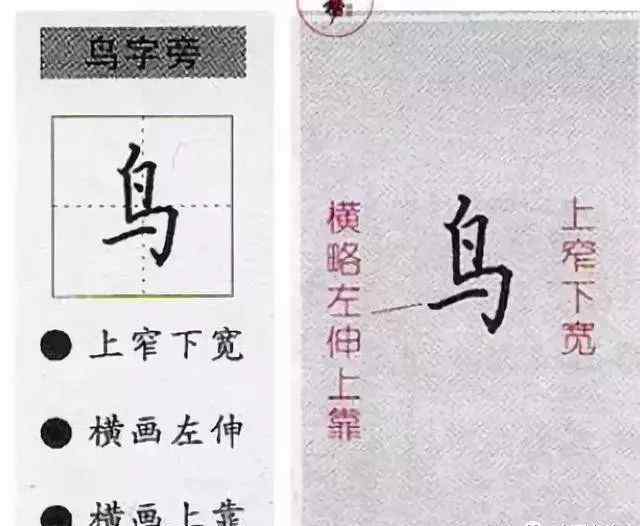 鸟字旁
鸟
上窄下宽
横画左伸
横画上靠
横略左伸上靠
鸟
上窄下宽